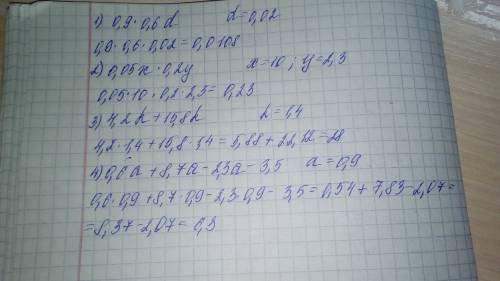 1) 0,9·0,6d d=0,02
0,9·0,6·0,02=0,0108
2) 0,05x·0,2y x=10; y=2,3
0,05·10·0,2·2,3=0,23
3) 4,2k+15,8k k=1,4
4,2·1,4+15,8·1,4=5,88+22,12=28
4) 0,6a+8,7a-2,3a-3,5 a=0,9
0,6·0,9+8,7·0,9-2,3·0,9-3,5=0,54+7,83-2,07=
=8,37-2,07=6,3